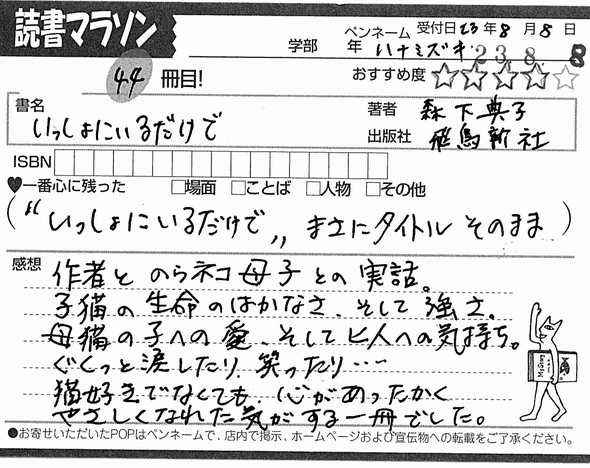 読書マラソン
44 冊目!
学部 年
ペンネーム ハナミズキ
受付日 23年8月8日
23.8.8
おすすめ度 ☆☆☆☆☆
書名 いっしょにいるだけで
著者 森下典子
出版社 飛鳥新社
ISBN
♥一番心に残った □場面 □ことば □人物 □その他
(“いっしょにいるだけで„ まさにタイトルそのまま)
感想 作者とのらネコ母子との実話。
子猫の生命のはかなさ、そして強さ、
母猫の子への愛、そしてヒ人への気持ち。
ぐぐっと涙したり、笑ったり……
猫好きでなくても、心があったかく
やさしくなれた気がする一冊でした。
●お寄せいただいたPOPはペンネームで、店内で掲示、ホームページおよび宣伝物への転載をご了承ください。